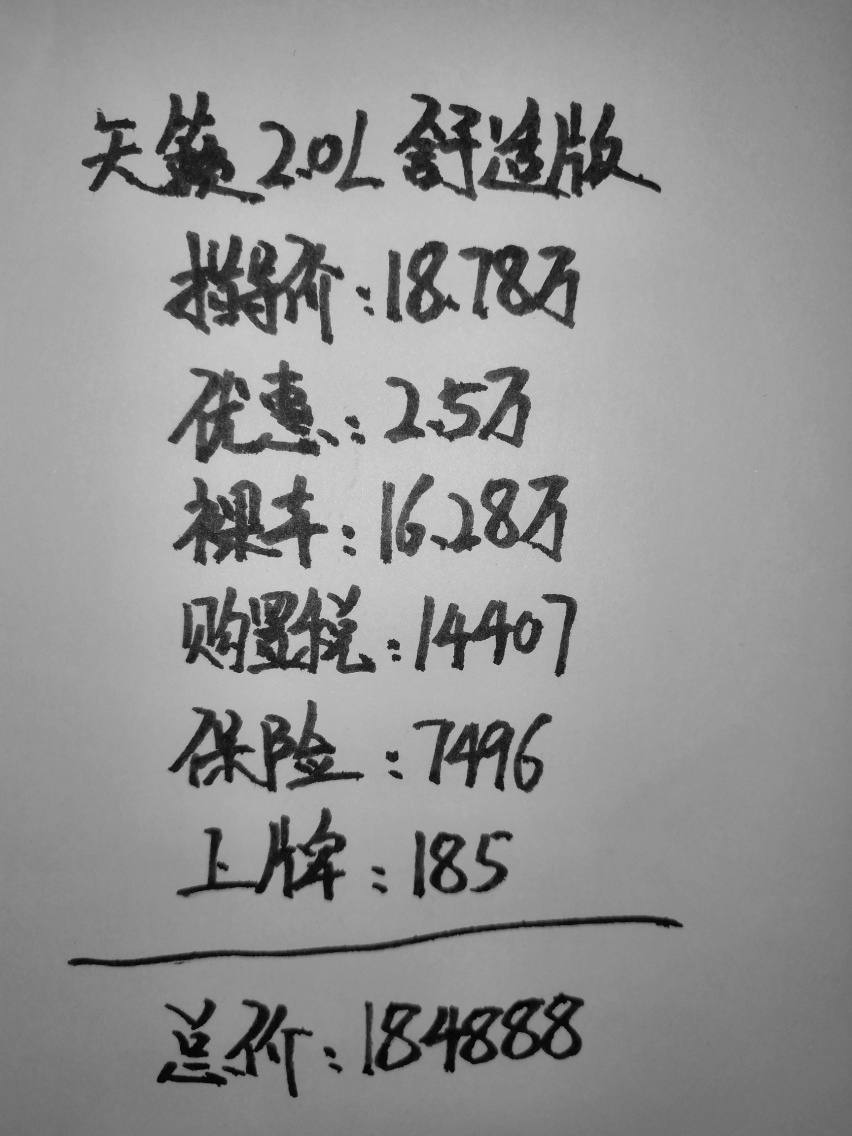 天籁2.0L舒适版
指导价:18.78万
优惠:2.5万
裸车:16.28万
购置税:14407
保险:7496
上牌:185
总价:184888